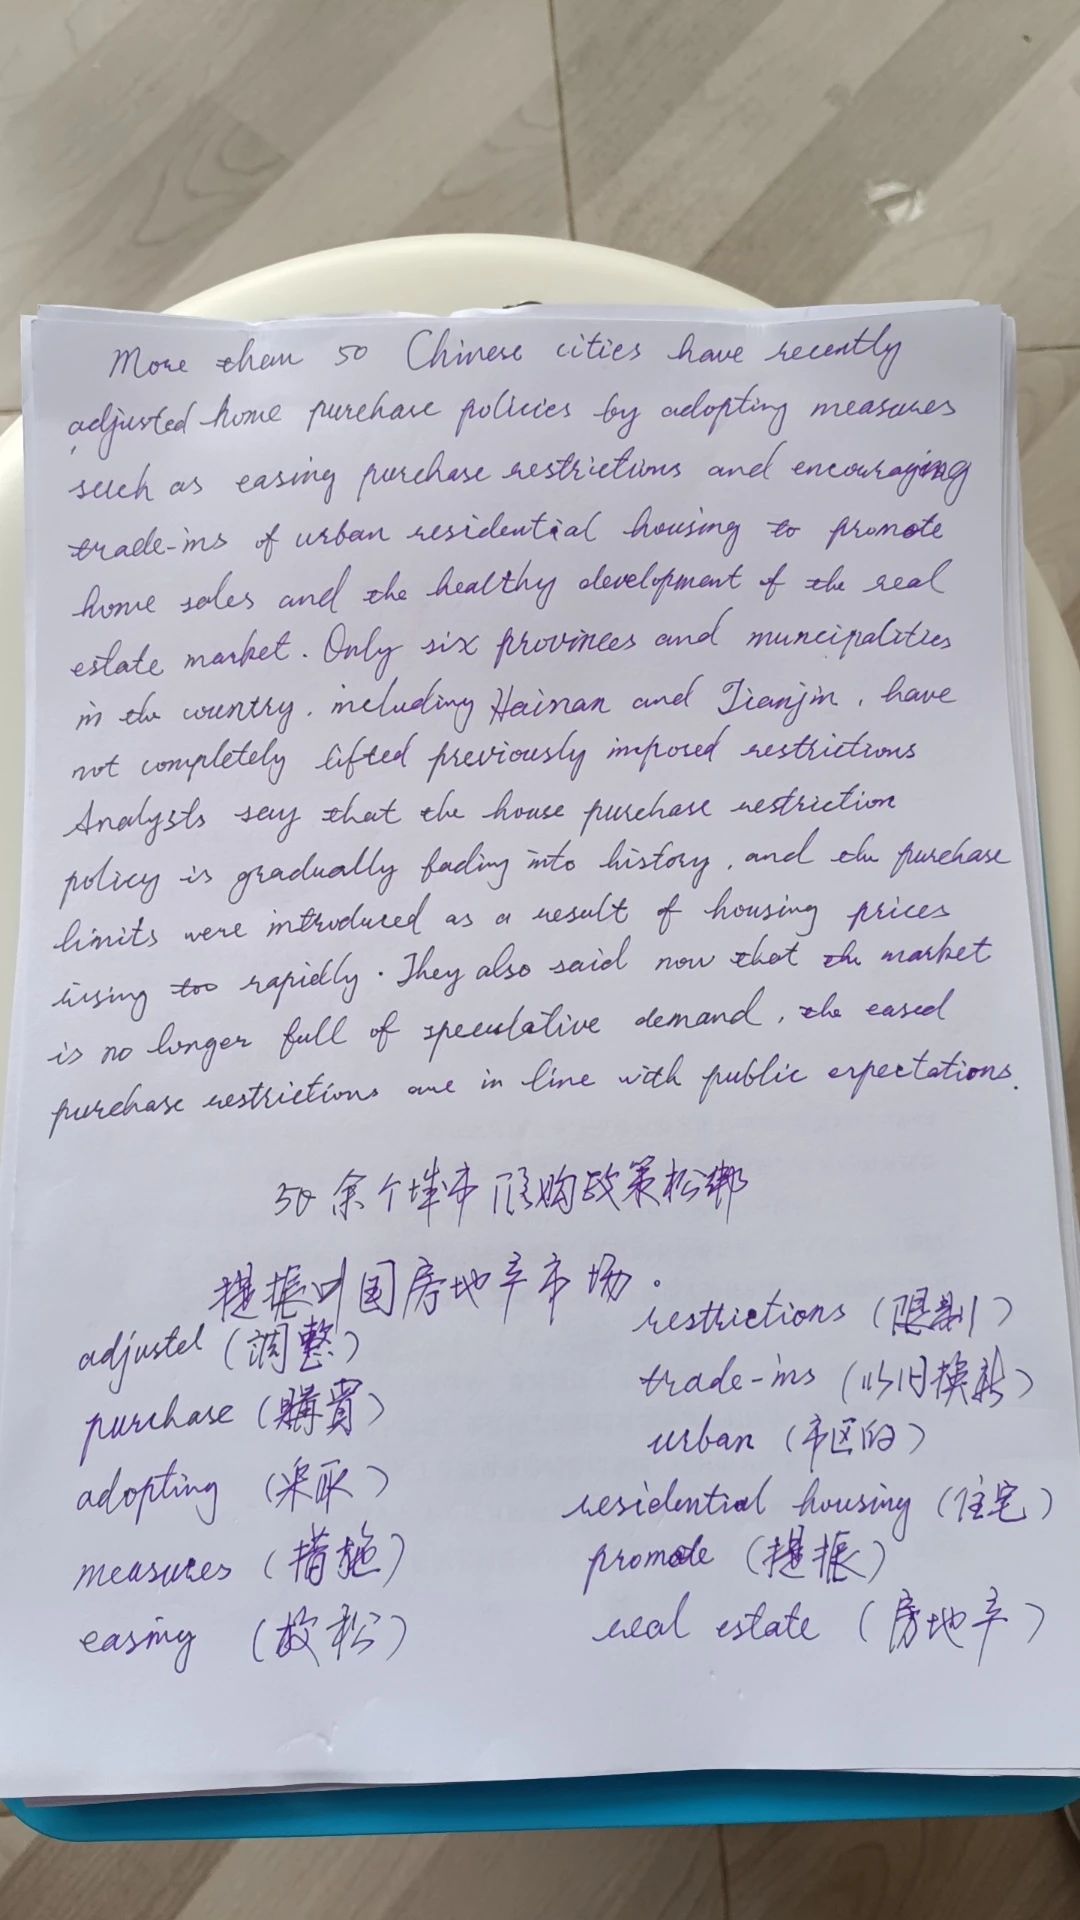 More than 50 Chinese cities have recently
adjusted home purchase policies by adopting measures
such as easing purchase restrictions and encouraging
trade-ins of urban residential housing to promote
home sales and the healthy development of the real
estate market. Only six provinces and muncipalities
in the country, including Hainan and Tianjin, have
not completely lifted previously imposed restrictions
Analysts say that the house purchase restriction
policy is gradually fading into history, and the purchase
limits were introduced as a result of housing prices
rising too rapidly. They also said now that the market
is no longer full of speculative demand, the eased
purchase restrictions are in line with public expectations.
50余个城市限购政策松绑
提振中国房地产市场.
adjusted (调整)
purchase (購買)
adopting (采取)
measures (措施)
easing (放松)
restrictions (限制)
trade-ins (以旧换新)
urban (市区的)
residential housing (住宅)
promote (提振)
real estate (房地产)